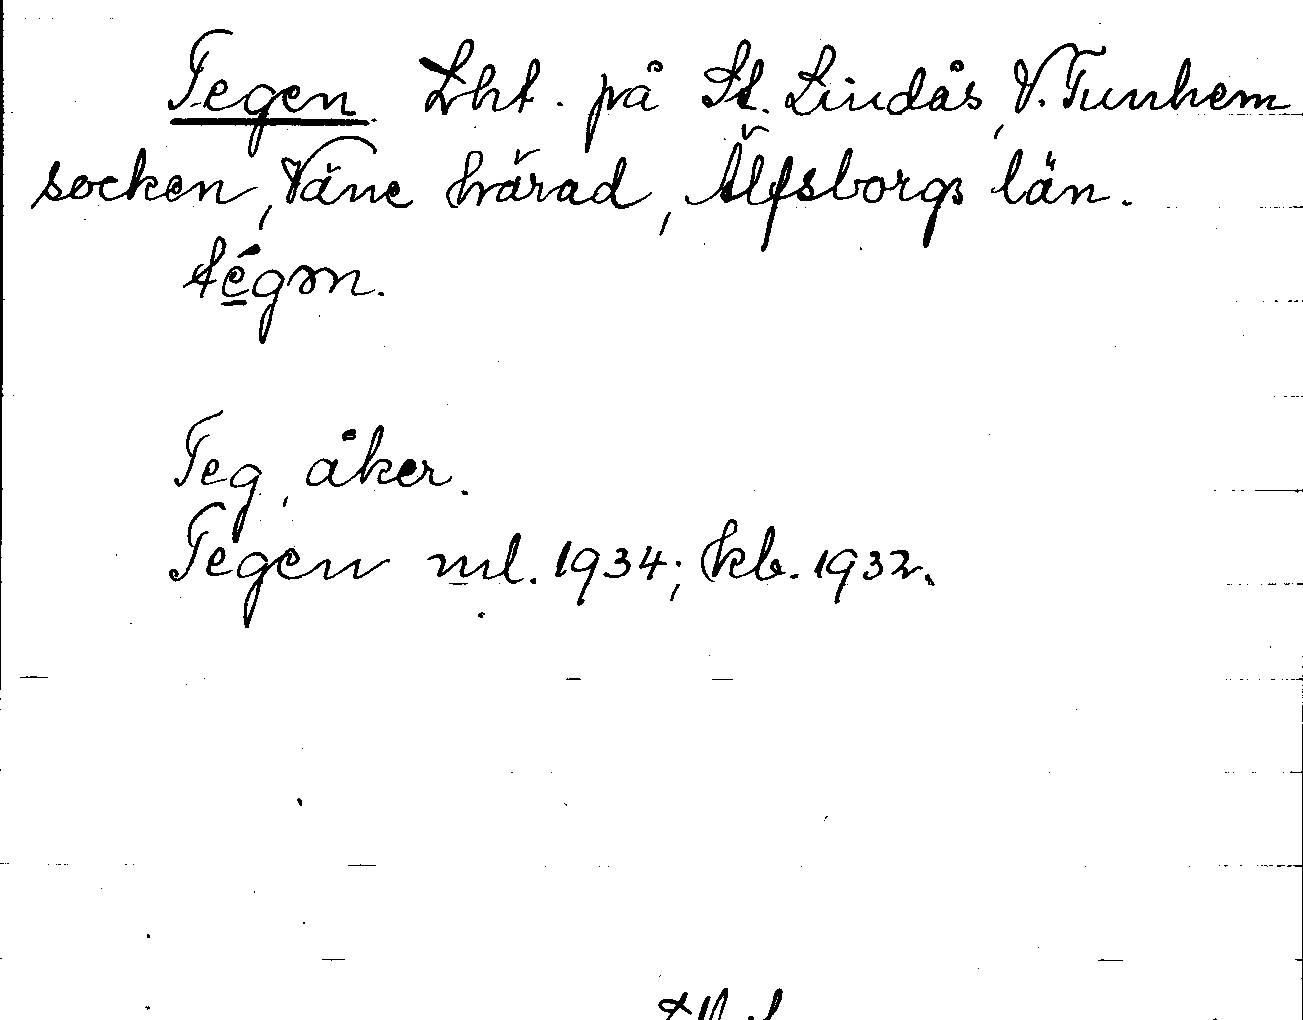 Tegen. Lht. på St. Lindås, V. Tunhem
socken, Väne härad, Älfsborgs län.
tégən.
Teg, åker.
Tegen ml. 1934; kb. 1932.